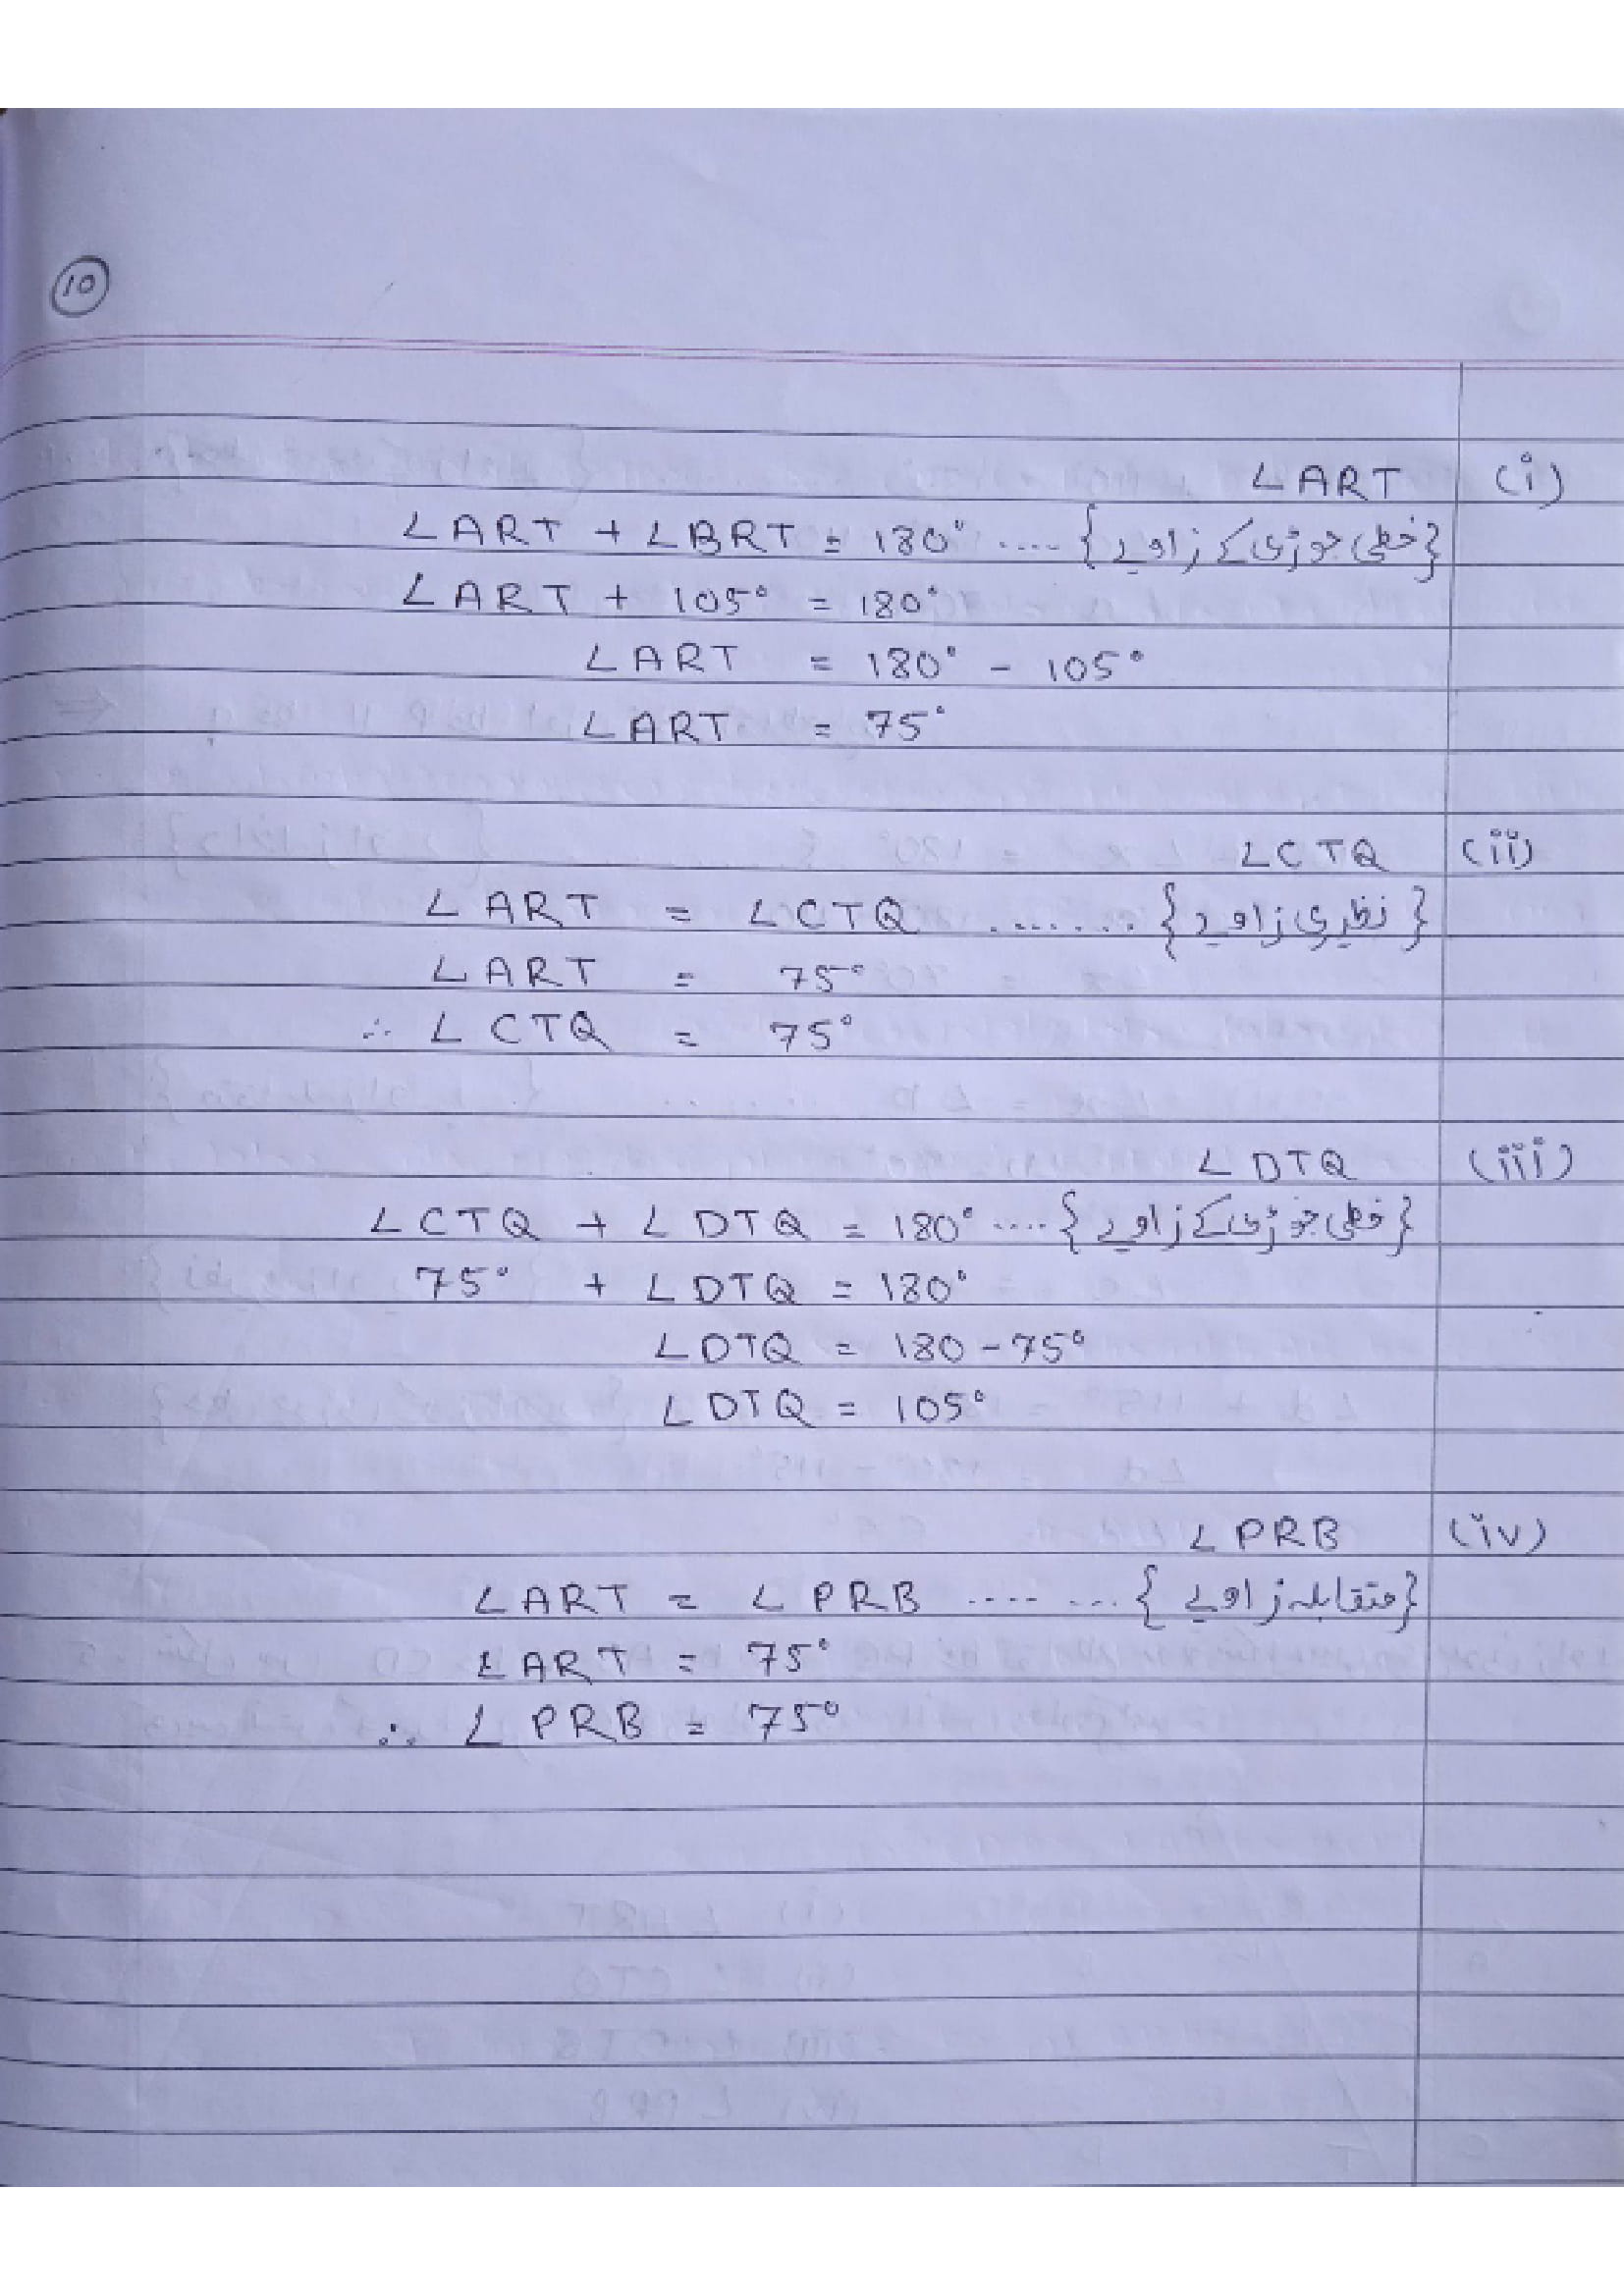 10
(i) ∠ART
∠ART + ∠BRT = 180° .... {خطی جوڑی کے زاویے}
∠ART + 105° = 180°
∠ART = 180° - 105°
∠ART = 75°
(ii) ∠CTQ
∠ART = ∠CTQ ....... {نظیری زاویے}
∠ART = 75°
∴ ∠CTQ = 75°
(iii) ∠DTQ
∠CTQ + ∠DTQ = 180° .... {خطی جوڑی کے زاویے}
75° + ∠DTQ = 180°
∠DTQ = 180 - 75°
∠DTQ = 105°
(iv) ∠PRB
∠ART = ∠PRB ....... {متقابلہ زاویے}
∠ART = 75°
∴ ∠PRB = 75°